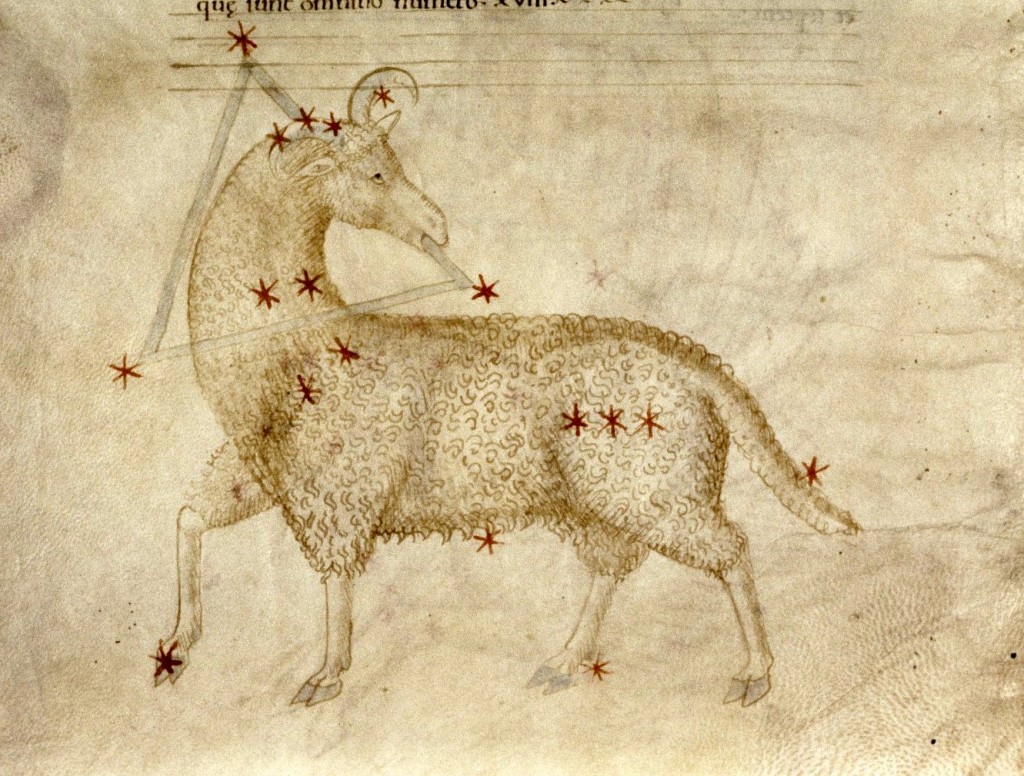 quę sunt omnino numero· xviii·